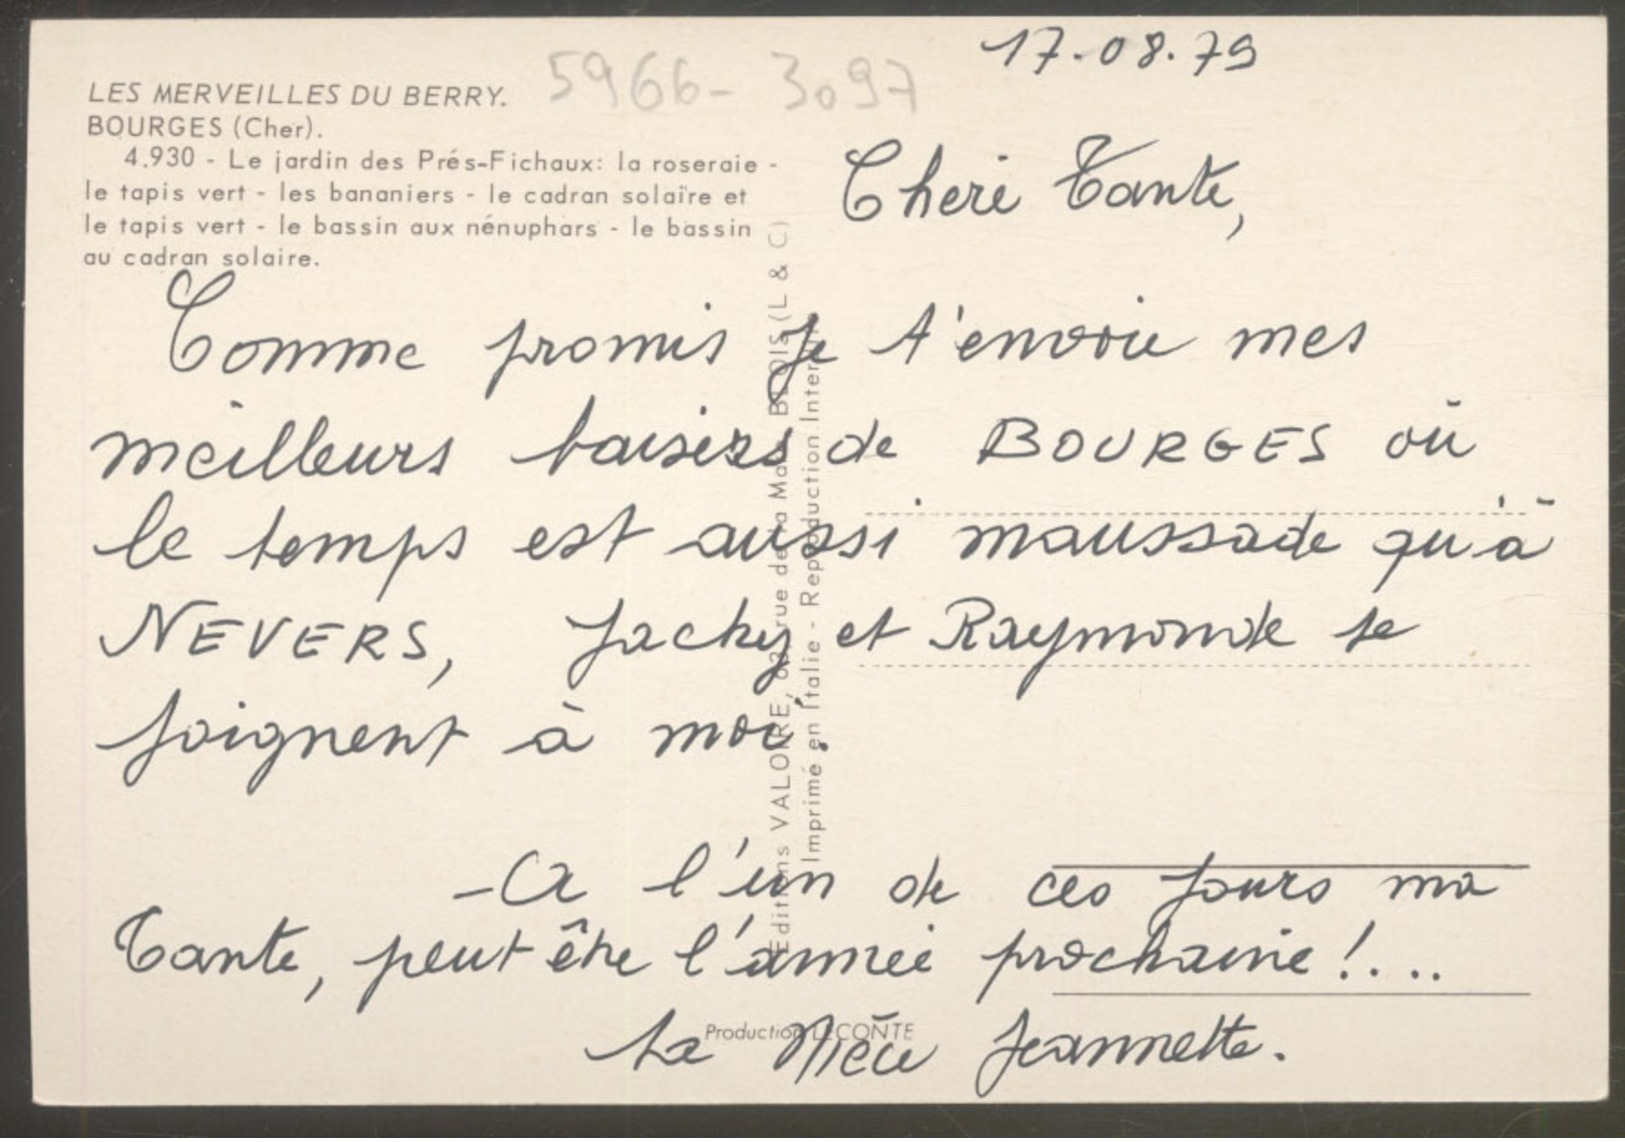 17.08.79
5966- 3097
LES MERVEILLES DU BERRY.
BOURGES (Cher).
4.930 - Le jardin des Prés-Fichaux: la roseraie -
le tapis vert - les bananiers - le cadran solaire et
le tapis vert - le bassin aux nénuphars - le bassin
au cadran solaire.
Cheré Tante,
Comme promis je t'envoie mes
meilleurs baisers de BOURGES où
le temps est aussi maussade qu'à
NEVERS, Jacky et Raymonde se
joignent à moi.
- A l'un de ces jours ma
Tante, peut être l'année prochaine !...
Ta Nièce Jeannette.
Editions VALOIRE, rue de la BLOIS (L & C)
Imprimé en Italie - Reproduction
Production LECONTE